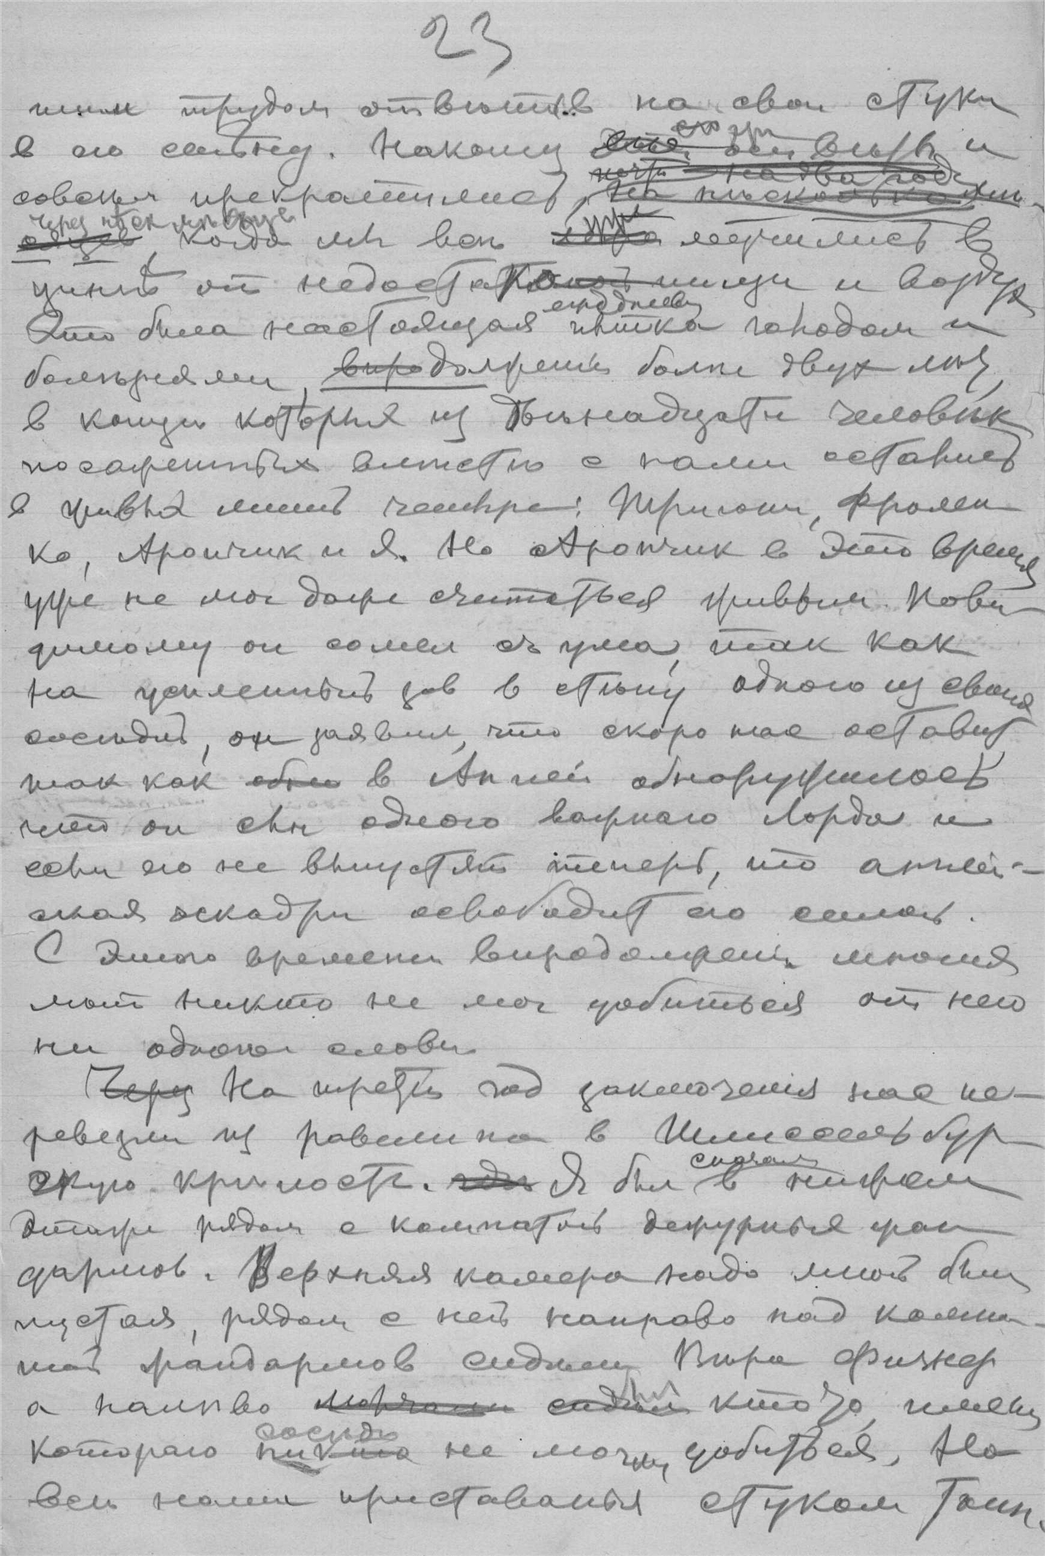 23
шим трудом ответив на свои стуки
в его стену. Наконец скоро они и
совсем прекратились, почти на два года
через несколько месяцев когда мы все лежали в
цинге от недостатка пищи и воздуха
Это была настоящая ежедневная пытка голодом и
болезнями, продолжение более двух лет,
в конце которых из двенадцати человек
посаженных вместе с нами остались
в живых лишь четыре: Тригони, Фролен-
ко, Арончик и я. Но Арончик в это время
уже не мог даже считаться живым. Пови-
димому он сошел съ ума, так как
на усиленный зов в стену одного из своих
соседей, он заявил, что скоро нас оставит,
так как обн в Англии обнаружилось
что он сын одного важного Лорда и
если его не выпустят теперь, то англий-
ская эскадра освободит его силой.
С этого времени впродолжении многих
лет никто не мог добиться от него
ни одного слова
Через На третий год заключения нас пе-
ревезли из равелина в Шлиссельбур-
скую крепость. Я был сначала в нижнем
этаже рядом с комнатой дежурных жан-
дармов. Верхняя камера надо мной была
пустая, рядом с ней направо над комна-
той жандармов сидела Вера Фигнер
а налево кто то, имени
которого соседи никто не могли добиться. На
все наши приставанья стуком